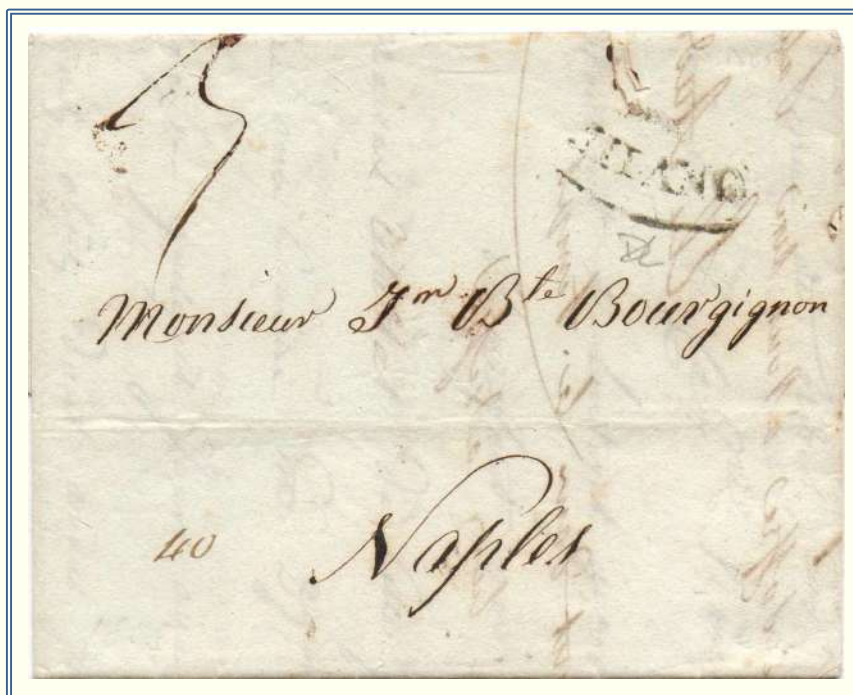 MILANO
Monsieur Jn Bte Bourgignon
40
Naples